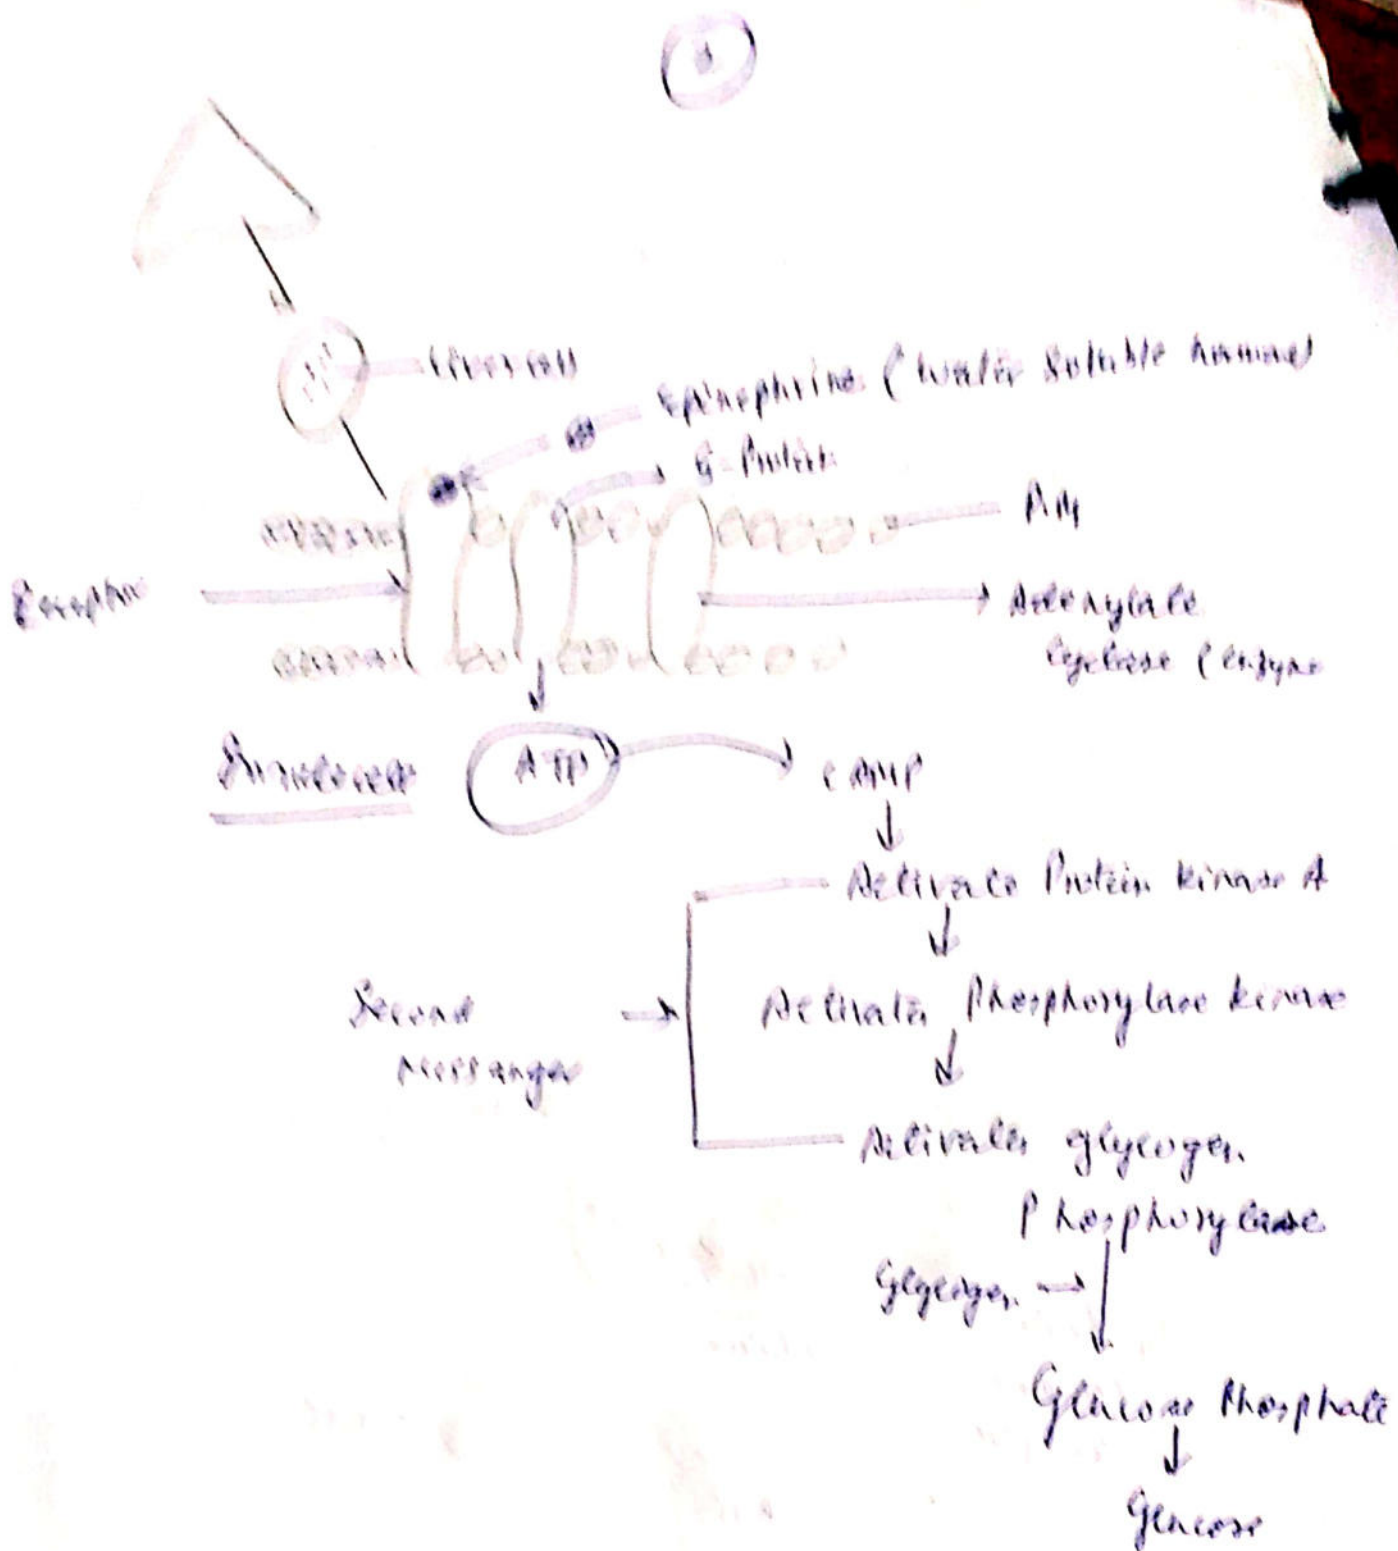 Liver cell
Epinephrine (Water Soluble hormone)
G-Protein
Receptor
Adenylate
Cyclase (enzyme
ATP
cAMP
Activate Protein kinase A
Second
Messanger
Activates Phosphorylase kinase
Activates glycogen
Phosphorylase
Glycogen
Glucose Phosphate
Glucose